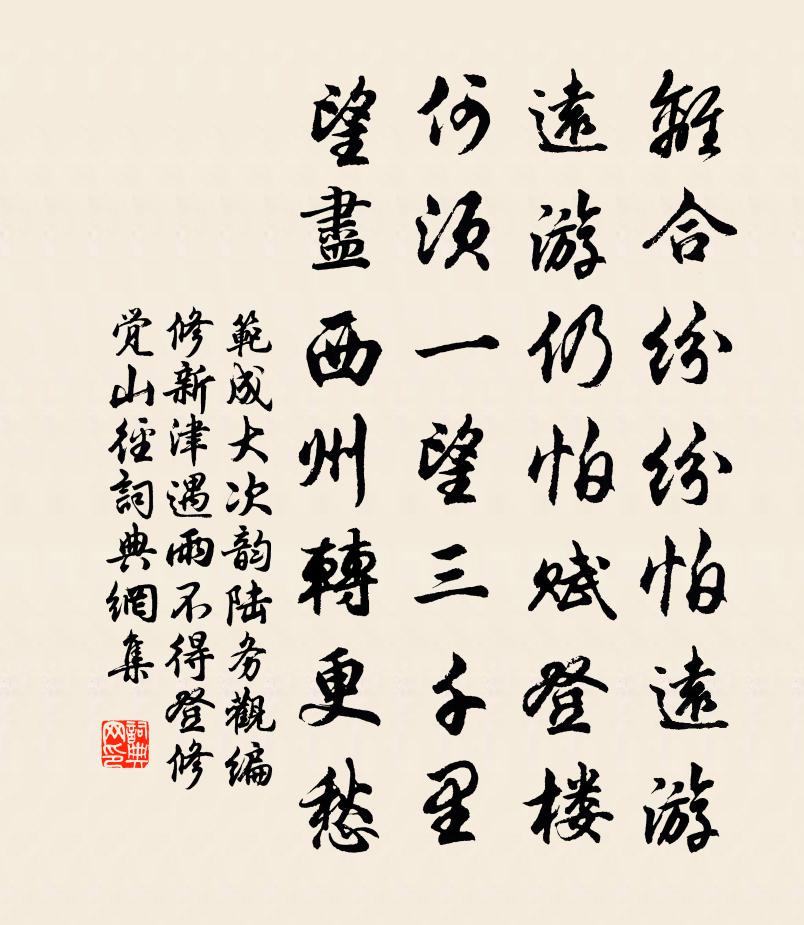 離合紛紛怕遠游
遠游仍怕賦登楼
何須一望三千里
望盡西州轉更愁
範成大次韵陆务觀编
修新津遇雨不得登修
觉山徑詞典網集
詞典网印